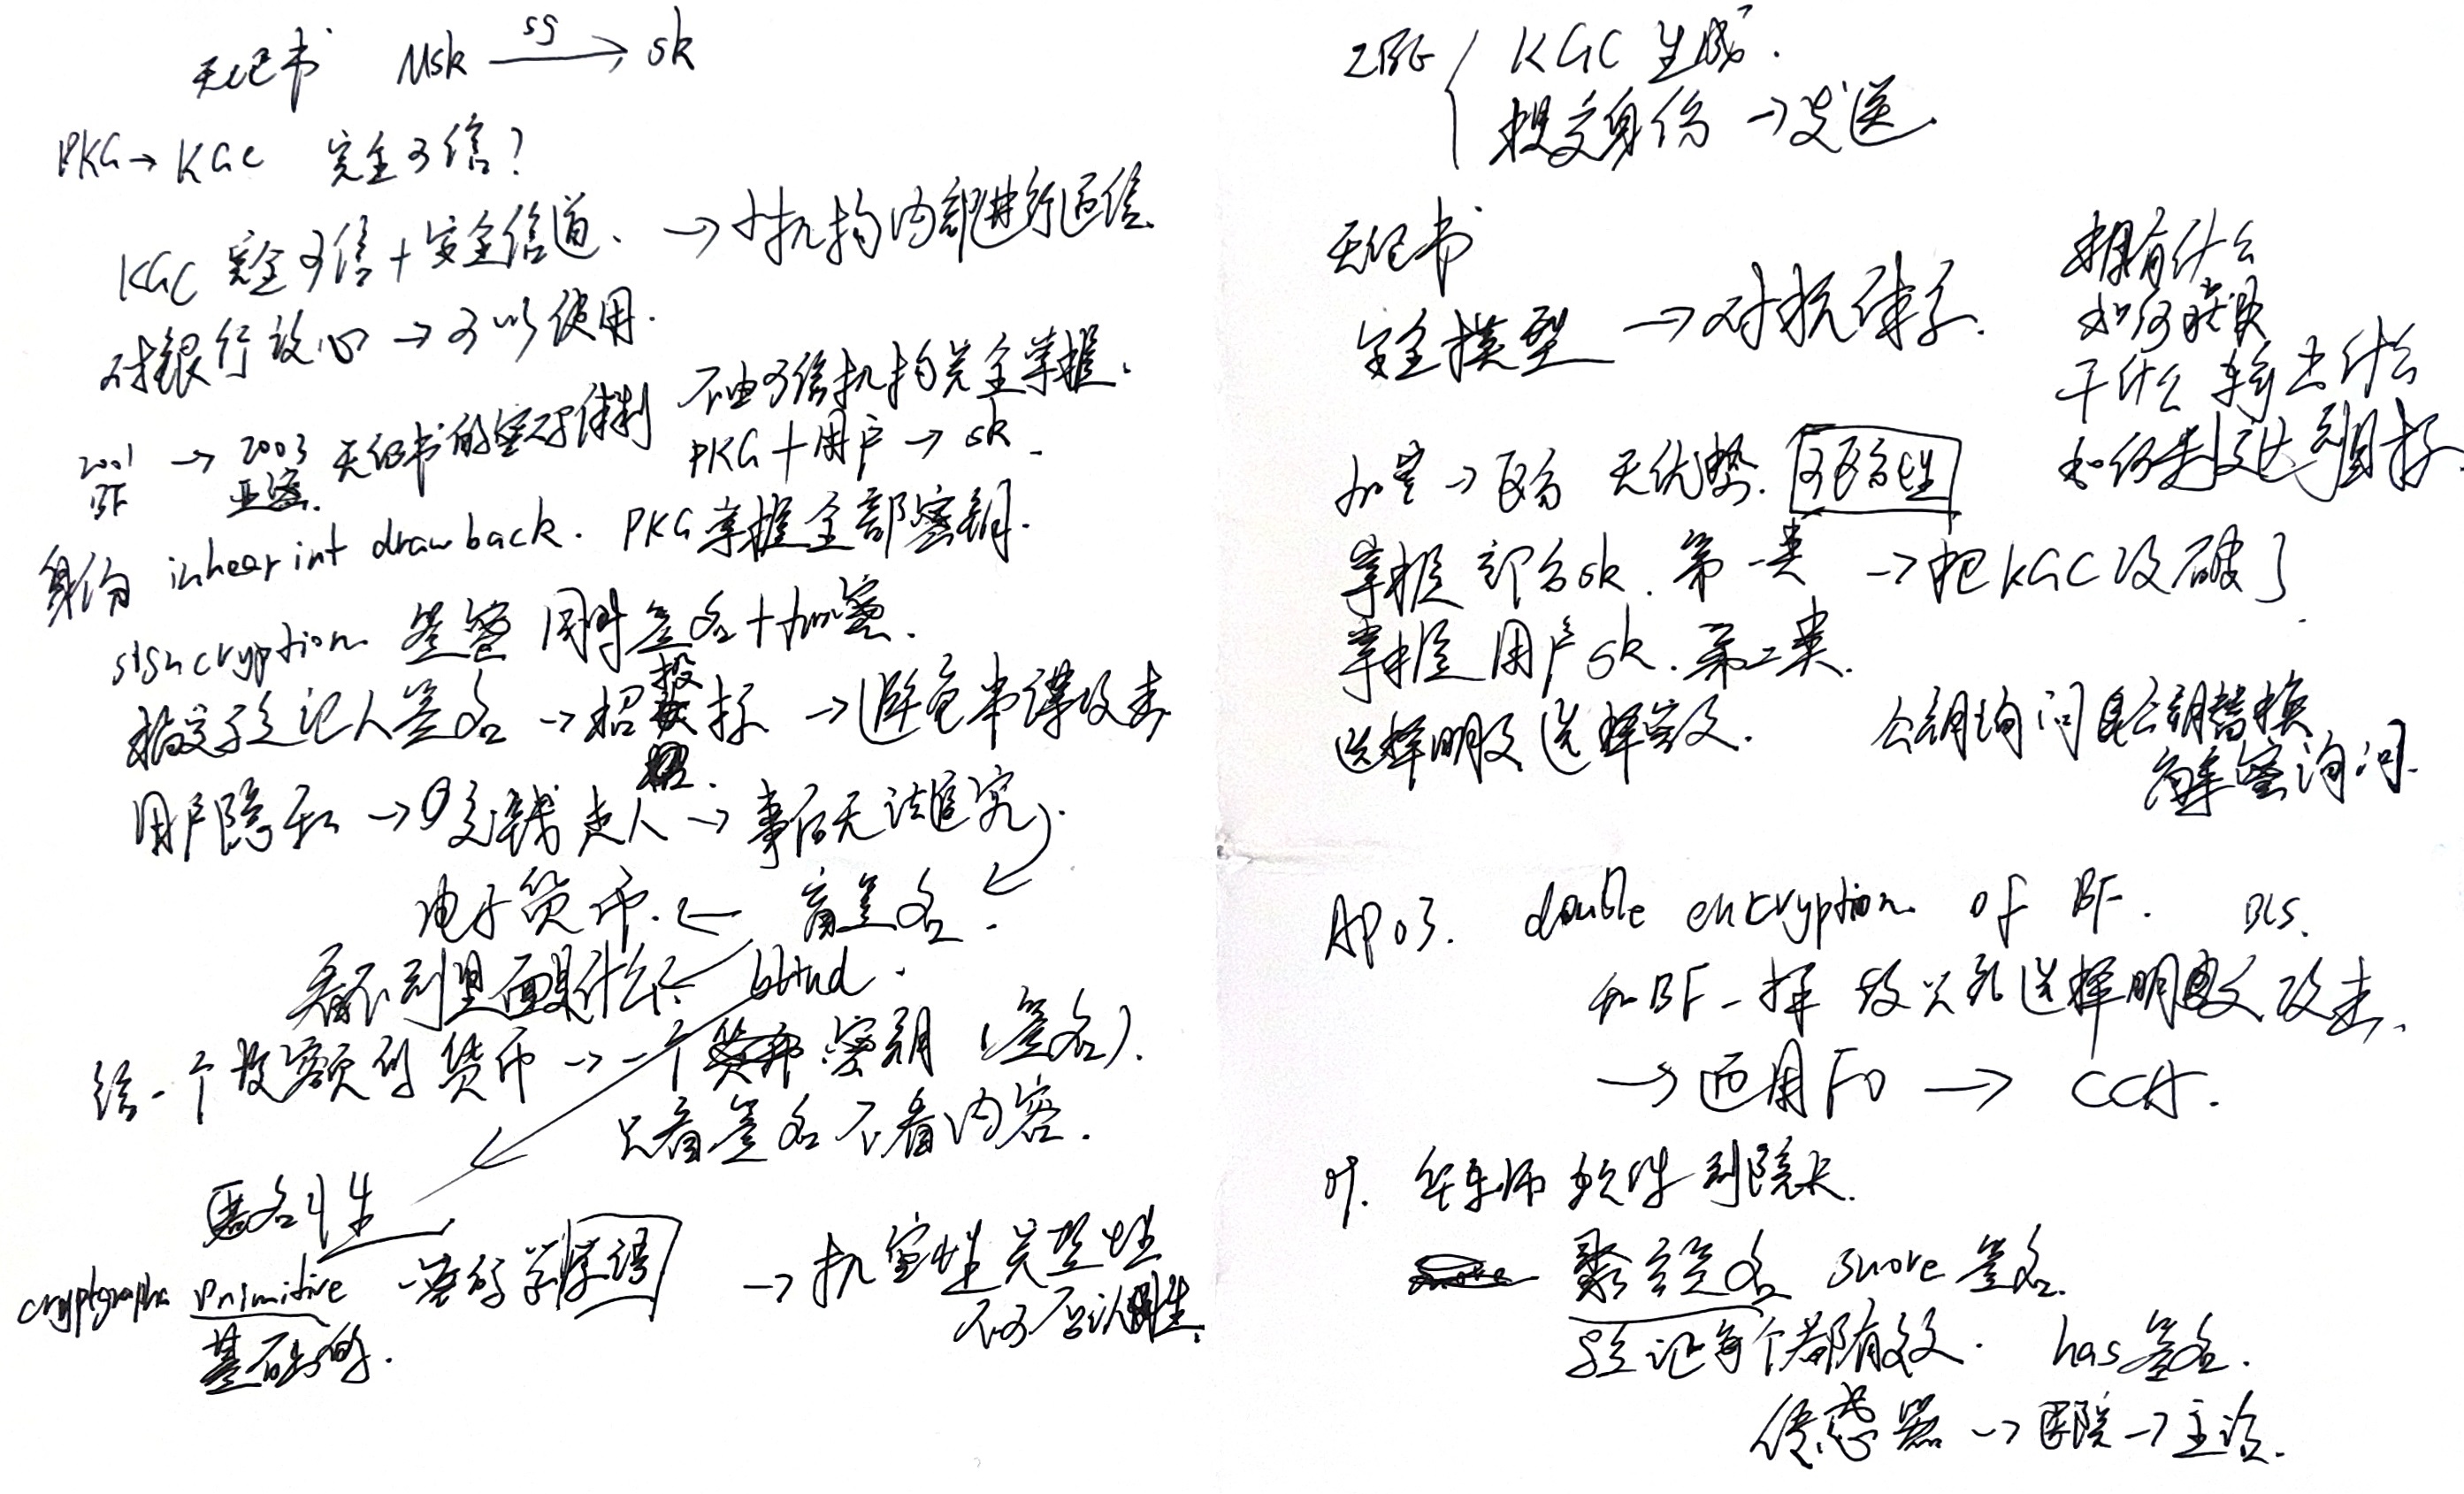 无证书 Msk sg → sk
PKG → KGC 完全可信?
KGC 完全可信 + 安全信道、 → 才机构内部进行通信.
对银行放心 → 可以使用.
2001 BF → 2003 亚密. 无证书的密码体制 不由可信机构完全掌握.
PKG + 用户 → sk.
身份 inhearint drawback. PKG掌握全部密钥.
signcryption 签密 同时签名+加密.
指定验证人签名 → 招投标 → 避免串谋攻击
用户隐私 → 交钱走人 → 事后无法追究
电子货币. ← 盲签名.
看不到里面是什么 blind.
给一个数额的货币 → 一个密钥 (签名).
只看签名不看内容.
匿名性
cryptographic Primitive 密码学原语 → 机密性 完整性
不可否认性.
基础的.
IBE KGC 生成.
提交身份 → 发送.
无证书
安全模型 → 对抗体系.
拥有什么
如何获取
干什么 输出什么
如何判定达到目标
加密 → 区分 无优势. 可区分性
掌握 部分sk. 第一类 → 把KGC攻破了
掌握 用户sk. 第二类.
选择明文 选择密文. 公钥询问 公钥替换
解密询问.
AP03. double encryption of BF. BLS.
和BF一样 只到选择明文攻击.
→ 运用FO → CCA.
华东师 软件 副院长.
聚合签名 签名.
验证每个都有效. has签名.
传感器 → 医院 → 主治.